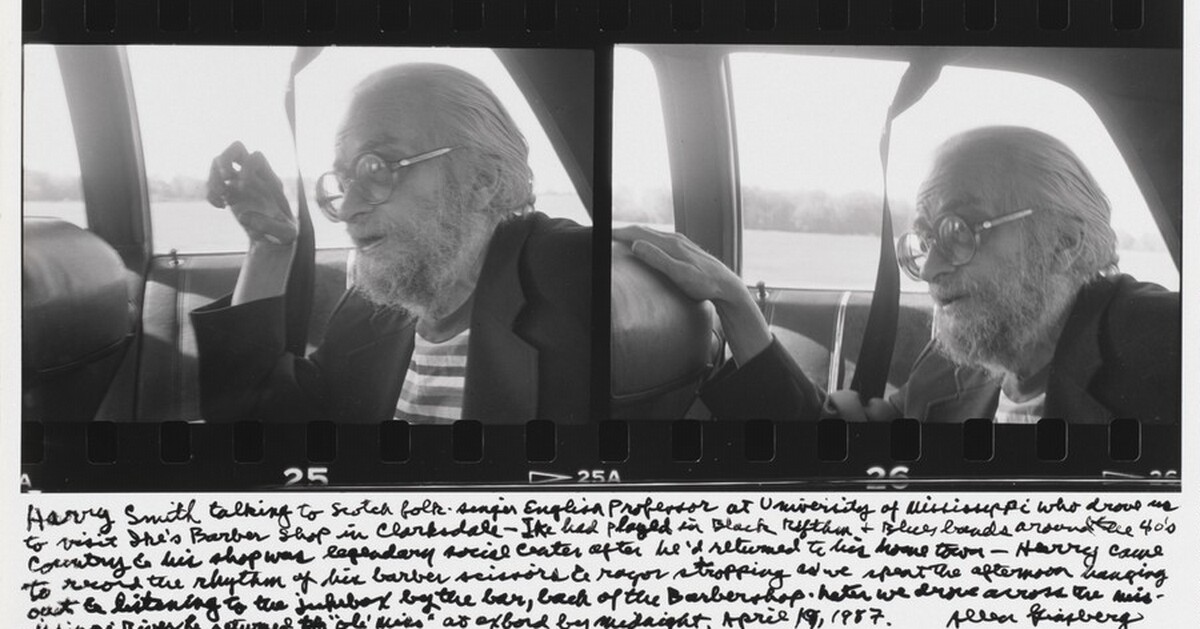 25 25A 26 26
Harry Smith talking to Scotch folk-singer English Professor at University of Mississippi who drove us
to visit Ike's Barber Shop in Clarksdale — Ike had played in Black Rythm + Blues bands around the 40's
Country & his shop was legendary social center after he'd returned to his home town — Harry came
to record the rhythm of his barber scissors & razor stropping as we spent the afternoon hanging
out & listening to the jukebox by the bar, back of the Barbershop. Later we drove across the Mis-
River & returned to "ole' Miss" at oxford by midnight, April 19, 1987. Allen Ginsberg